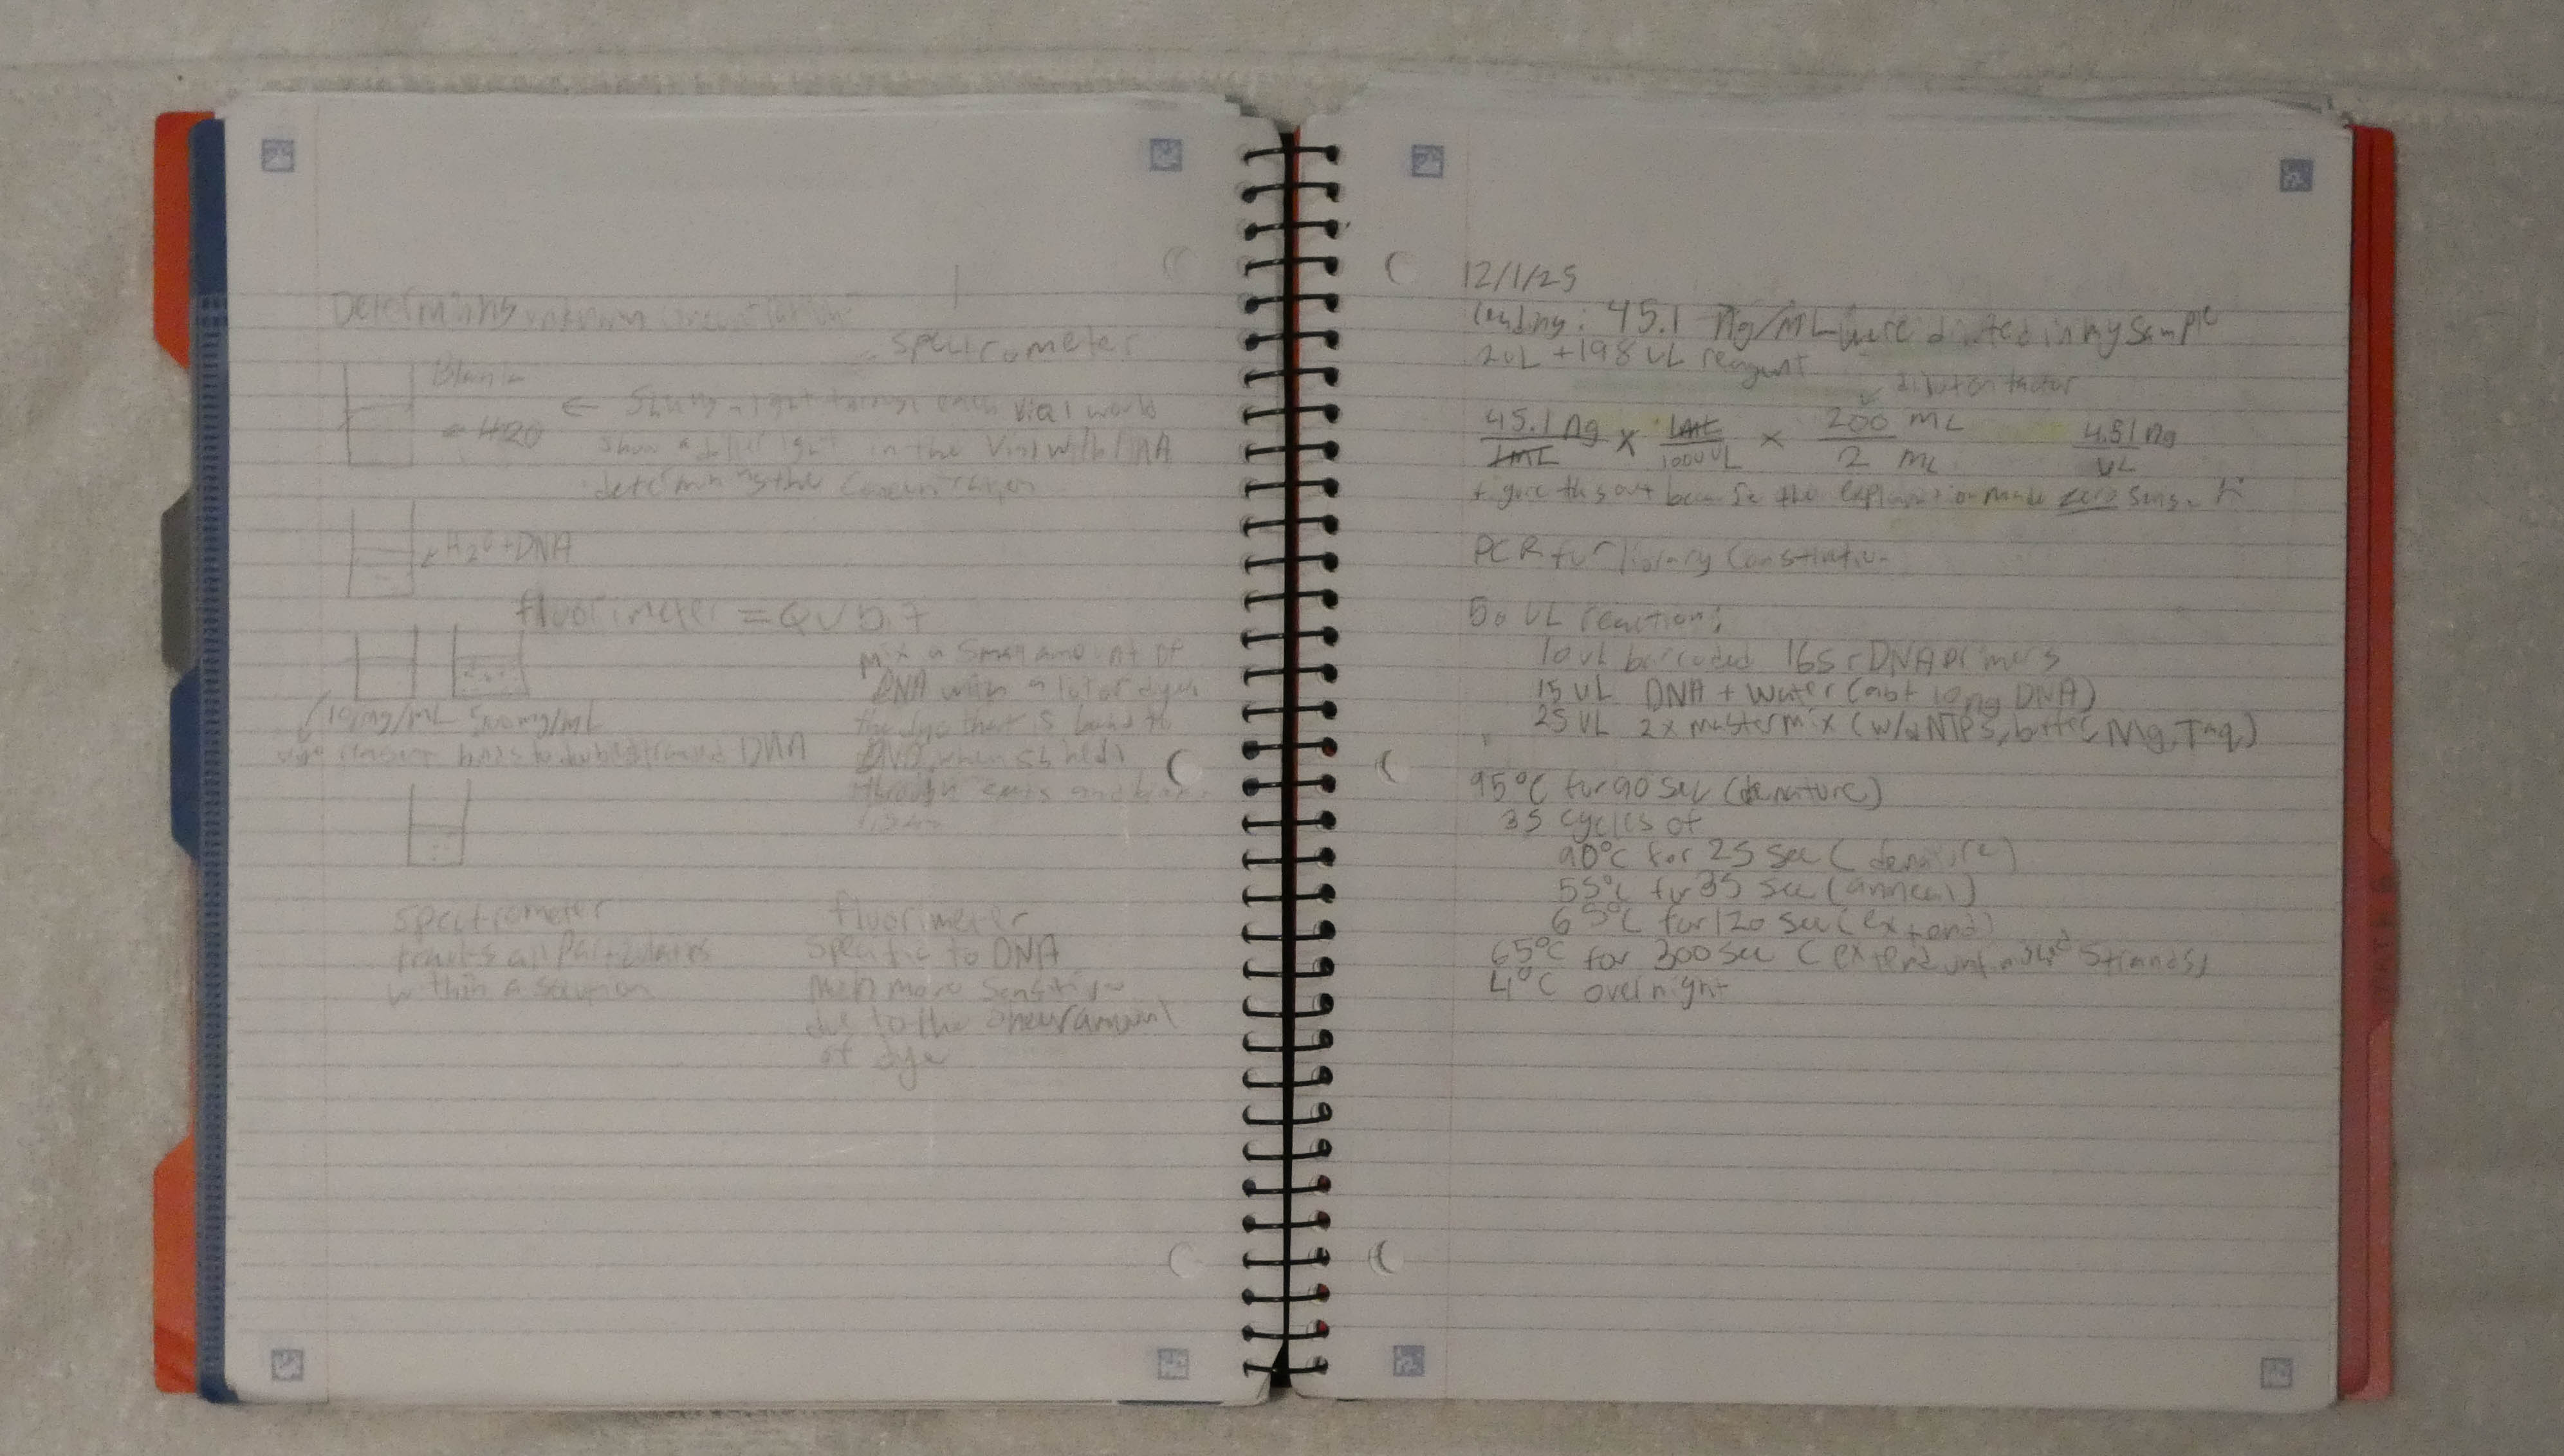 Determining unknown
spectrometer
Blank
← H2O
← Shining light through each vial would
show a different light in the vial w/ DNA
determining the concentration
H2O + DNA
fluorimeter = QUBIT
mix a small amount of
DNA with a lot of dye,
the dye that is bound to
DNA, when
through emits and
10mg/mL 500mg/mL
dye reagent binds to double stranded DNA
spectrometer
counts all particulates
within a solution
fluorimeter
specific to DNA
much more sensitive
due to the sheer amount
of dye
12/1/25
leading: 45.1 ng/mL were diluted in my sample
2uL + 198 uL reagent
dilution factor
45.1 ng / 1mL x 1mL / 1000 uL x 200 mL / 2 mL 4.51 ng / uL
figure this out because the explanation made zero sense
PCR for library construction
50 UL reaction:
10 uL barcoded 16S rDNA primers
15 uL DNA + Water (abt 10 ng DNA)
25 UL 2x mastermix (w/dNTPs, buffer, Mg, Taq)
95°C for 90 sec (denature)
35 cycles of
90°C for 25 sec (denature)
55°C for 35 sec (anneal)
65°C for 120 sec (extend)
65°C for 300 sec (extend unfinished strands)
4°C overnight